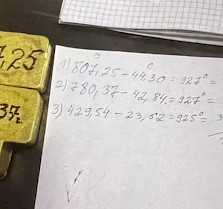 ,25
37
в с
1) 807,25 - 44,30 = 927°=
2) 780,37 - 42,84 = 927°
3) 429,54 - 23,62 = 925°=